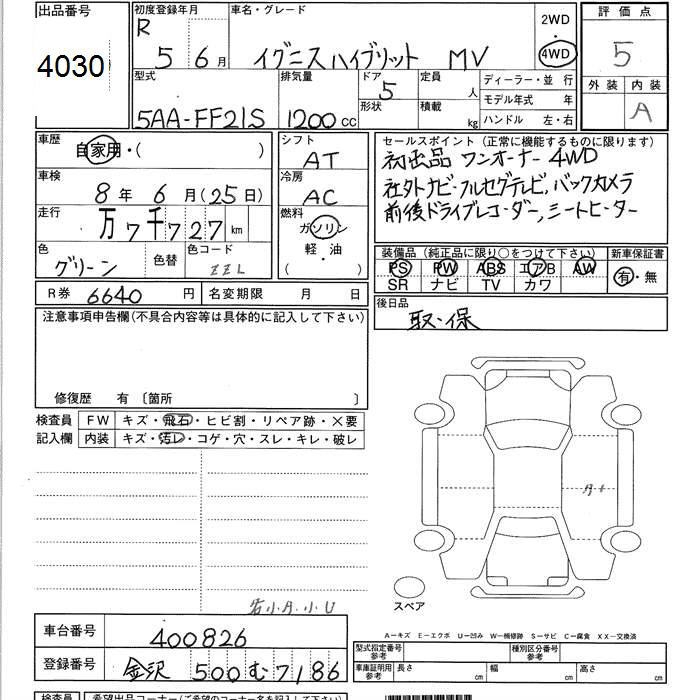 出品番号
4030
初度登録年月
R 5 6月
車名・グレード
イグニスハイブリット MV
2WD
・
4WD
評価点
5
外装 内装
A
型式
5AA-FF21S
排気量
1200cc
ドア
5
形状
定員
人
積載
kg
ディーラー・並行
モデル年式 年
ハンドル 左・右
車歴
自家用・( )
車検
8年 6月(25日)
走行
万7千727km
色
グリーン
色替
色コード
ZZL
シフト
AT
冷房
AC
燃料
ガソリン
軽・油
・
( )
セールスポイント(正常に機能するものに限ります)
初出品 ワンオーナー 4WD
社外ナビ・フルセグテレビ,バックカメラ
前後ドライブレコーダー,シートヒーター
装備品(純正品に限り○をつけて下さい)
PS PW ABS エアB AW
SR ナビ TV カワ
新車保証書
有・無
R券 6640円
名変期限 月 日
後日品
取・保
注意事項申告欄(不具合内容等は具体的に記入して下さい)
修復歴 有〔箇所 〕
検査員
記入欄
FW キズ・飛石・ヒビ割・リペア跡・×要
内装 キズ・汚レ・コゲ・穴・スレ・キレ・破レ
スペア
車台番号
400826
登録番号
金沢 500 む 7186
A−キズ E−エクボ U−凹み W−補修跡 S−サビ C−腐食 XX−交換済
型式指定番号
参考
種別区分番号
参考
車庫証明用
参考
長さ cm
幅 cm
高さ cm
検査員
希望出品コーナー(ご希望のコーナー名